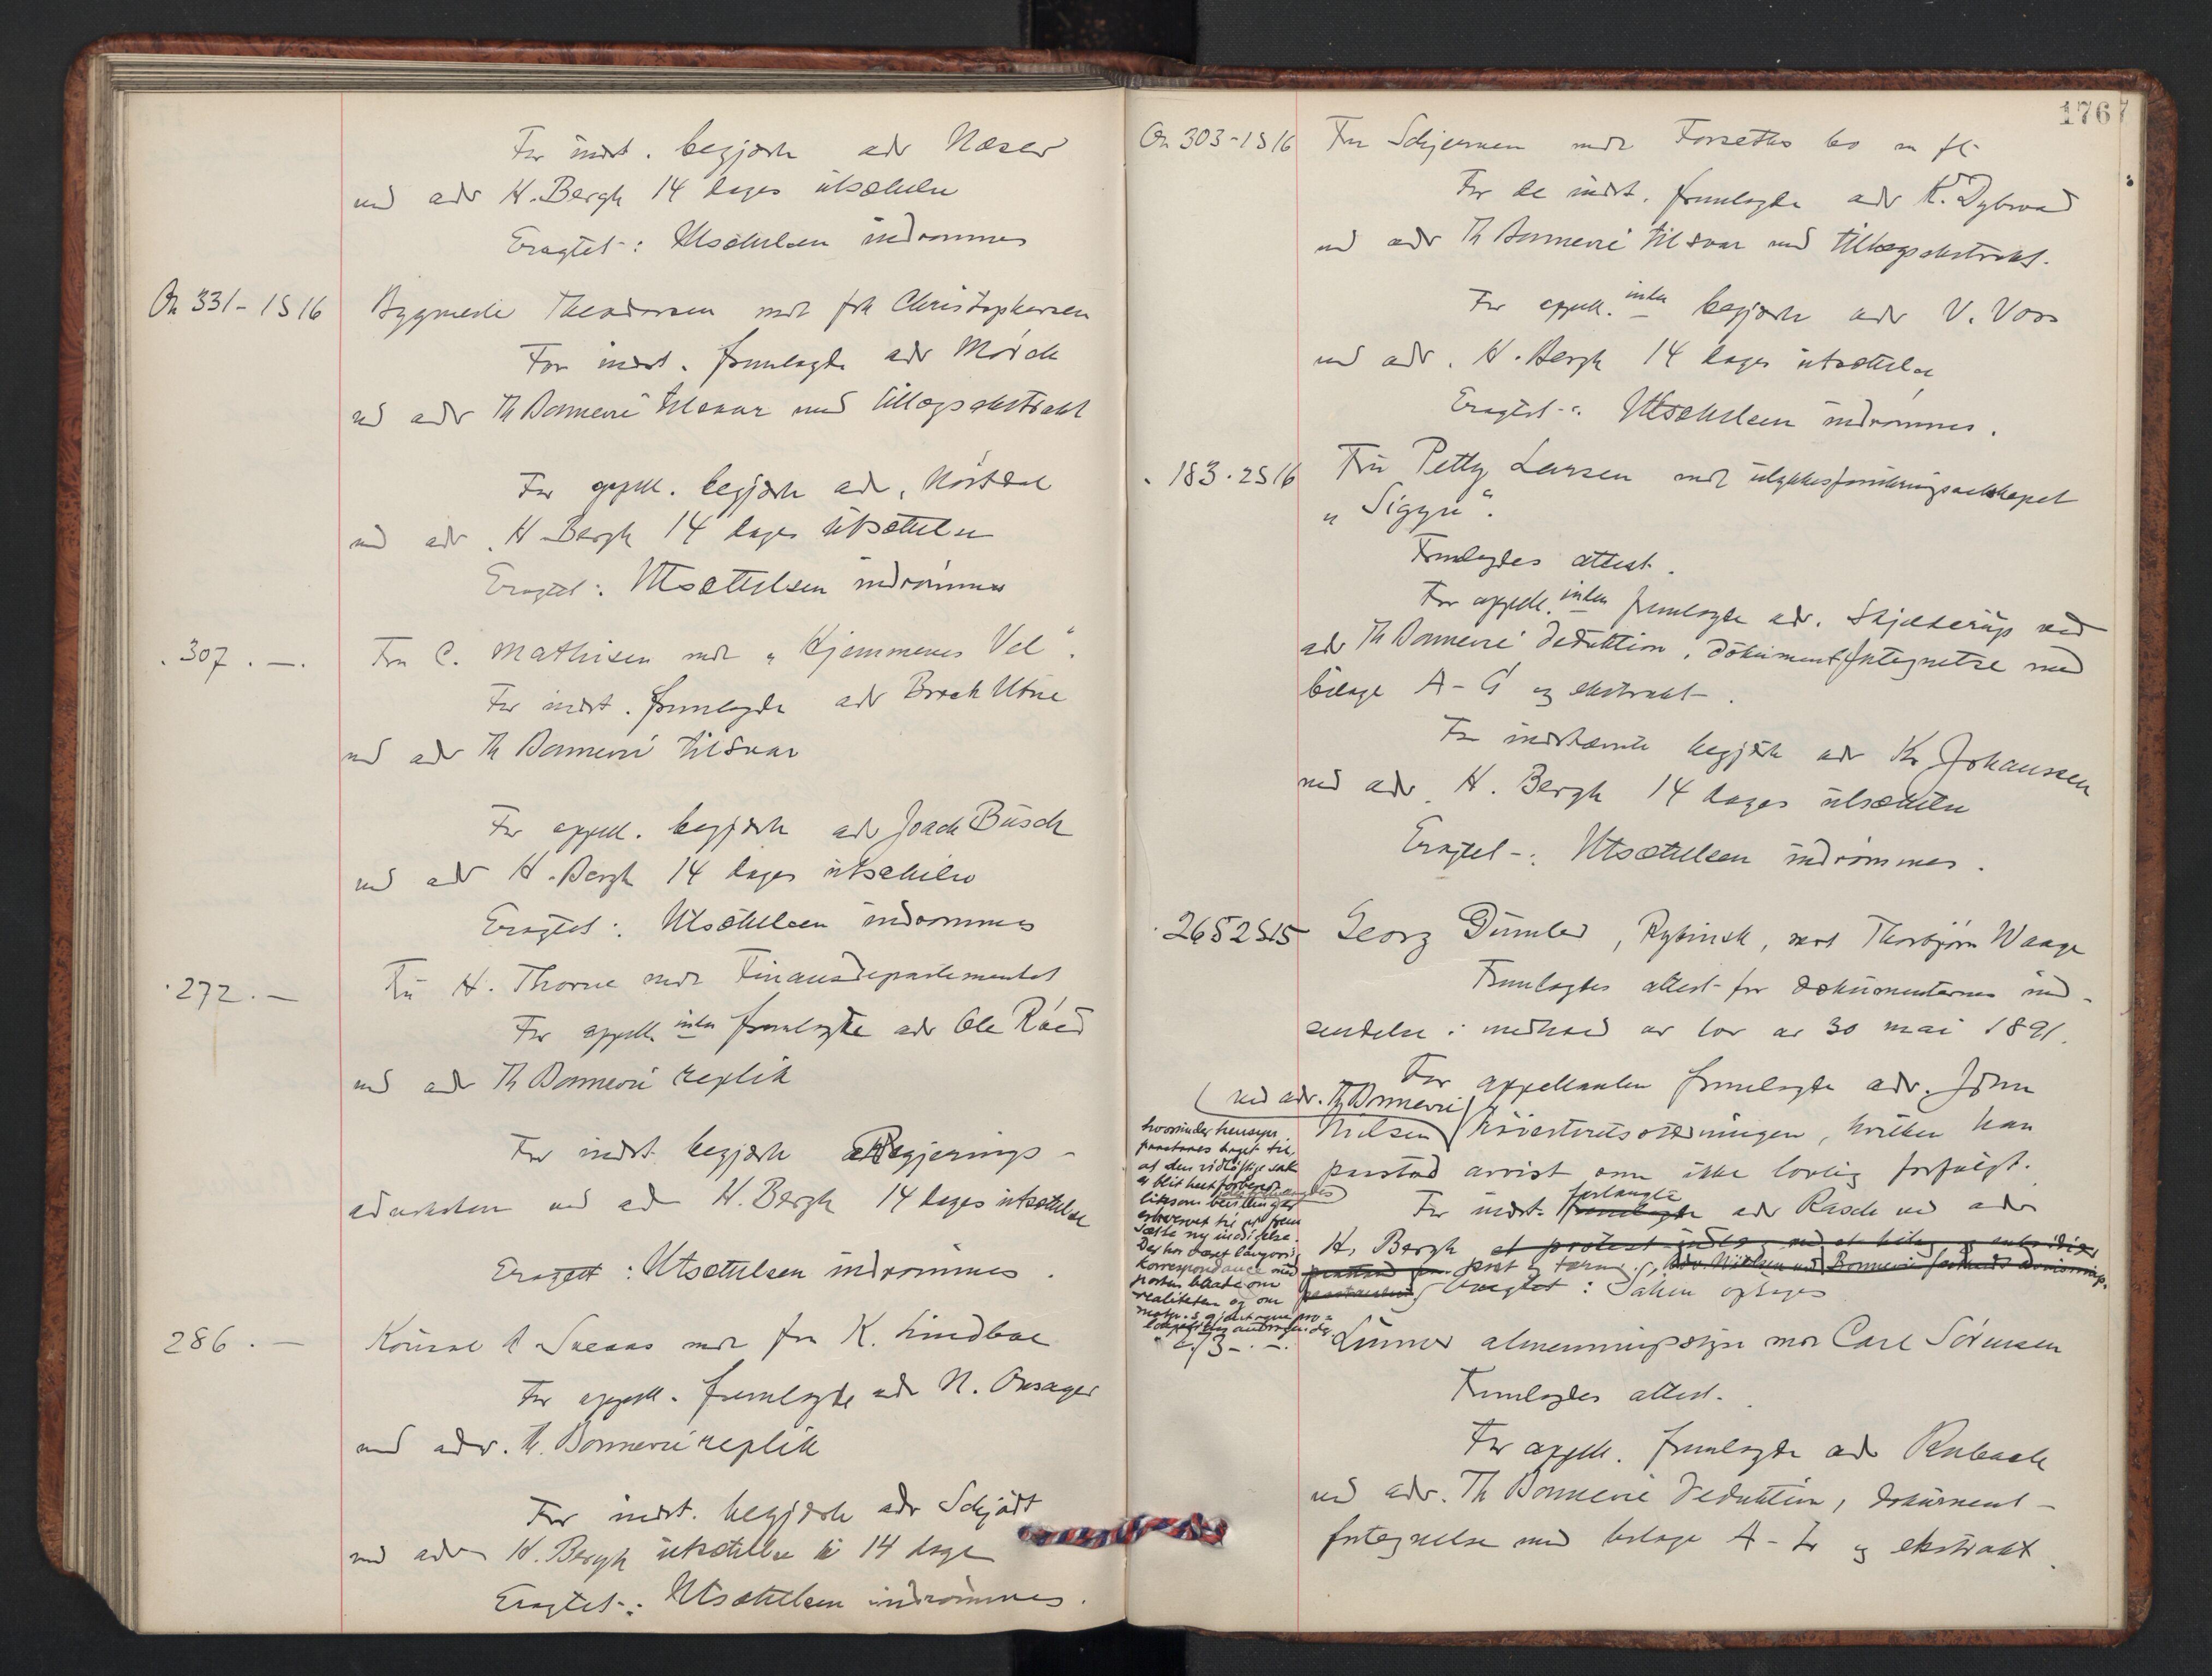 For indst. begjærte adv Næser
ved adv H. Bergh 14 dages utsættelse
Eragtet: Utsættelsen indrømmes
On 331 - 1S 16 Bygmester Theodorsen mot frk Christophersen
For indst. fremlagde adv Mörch
ved adv Th Bonnevie tilsvar med tillægsekstrakt
For appell. begjærte adv.
ved adv. H Bergh 14 dages utsættelse
Eragtet: Utsættelsen indrømmes
. 307 . — . Fru C. Mathisen mot „Hjemmenes Vel“.
For indst. fremlagde adv Broch Utne
ved adv Th Bonnevie tilsvar
For appell. begjærte adv Joach Busch
ved adv H. Bergh 14 dages utsættelse
Eragtet: Utsættelsen indrømmes
. 272 . — Fru H. Thorne mot Finansdepartementet
For appell. inten fremlagde adv Ole Röed
ved adv Th Bonnevie replik
For indst. begjærte Regjerings-
advokaten ved adv H. Bergh 14 dages utsættelse
Eragtet: Utsættelsen indrømmes.
286 . — Konsul Sveaas mot fru K. Lindboe
For appell. fremlagde adv N. Onsager
ved adv. Th. Bonnevie replik
For indst. begjærte adv Schjödt
ved adv H. Bergh utsættelse i 14 dage
Eragtet: Utsættelsen indrømmes.
1767
On 303 - 1S 16 Fru Schjernen mot Forseths bo m fl
For de indst. fremlagde adv K. Dybwad
ved adv Th Bonnevie tilsvar med tillægsekstrakt.
For appell. inten begjærte adv V. Voss
ved adv. H. Bergh 14 dages utsættelse
Eragtet: Utsættelsen indrømmes.
. 183 . 2S 16 Fru Petty Larsen mot ulykkesforsikringsselskapet
„Sigyn“.
Fremlagdes attest.
For appell. inten fremlagde adv. Skjelderup ved
adv Th Bonnevie deduktion, dokumentfortegnelse med
bilage A - G og ekstrakt.
For indstævnte begjærte adv Kr Johanssen
ved adv. H. Bergh 14 dages utsættelse
Eragtet: Utsættelsen indrømmes.
. 265 2S15 Georg Dümler, Rybinsk, mot Thorbjørn Waage
Fremlagdes attest for dokumenternes ind-
sendelse i medhold av lov av 30 mai 1891.
For appellanten fremlagde adv. John
(ved adv. Th Bonnevie)
Nielsen höiesteretsstevningen, hvilken han
paastod avvist som ikke lovlig forfulgt.
hvorunder hensyn
paastaaes taget til,
at den vidløftige sak
er blit helt forberedt
likesom bevilling er
erhvervet til at frem
sætte ny indsigelse.
Der har været langvarig
korrespondance med
parten baade om
realiteten og om
For indst. forlangte fremlagde adv Rasch ved adv
H. Bergh et protest indlæg med et bilag og subsidiær
paastand Adv. Nielsen ved Bonnevie avvisning.
Eragtet: Saken optages
Linnes almenningseiere mot Carl Sörensen
Fremlagdes attest.
For appell. fremlagde adv Rubach
ved adv. Th Bonnevie deduktion, dokument-
fortegnelse med bilage A - L og ekstrakt.